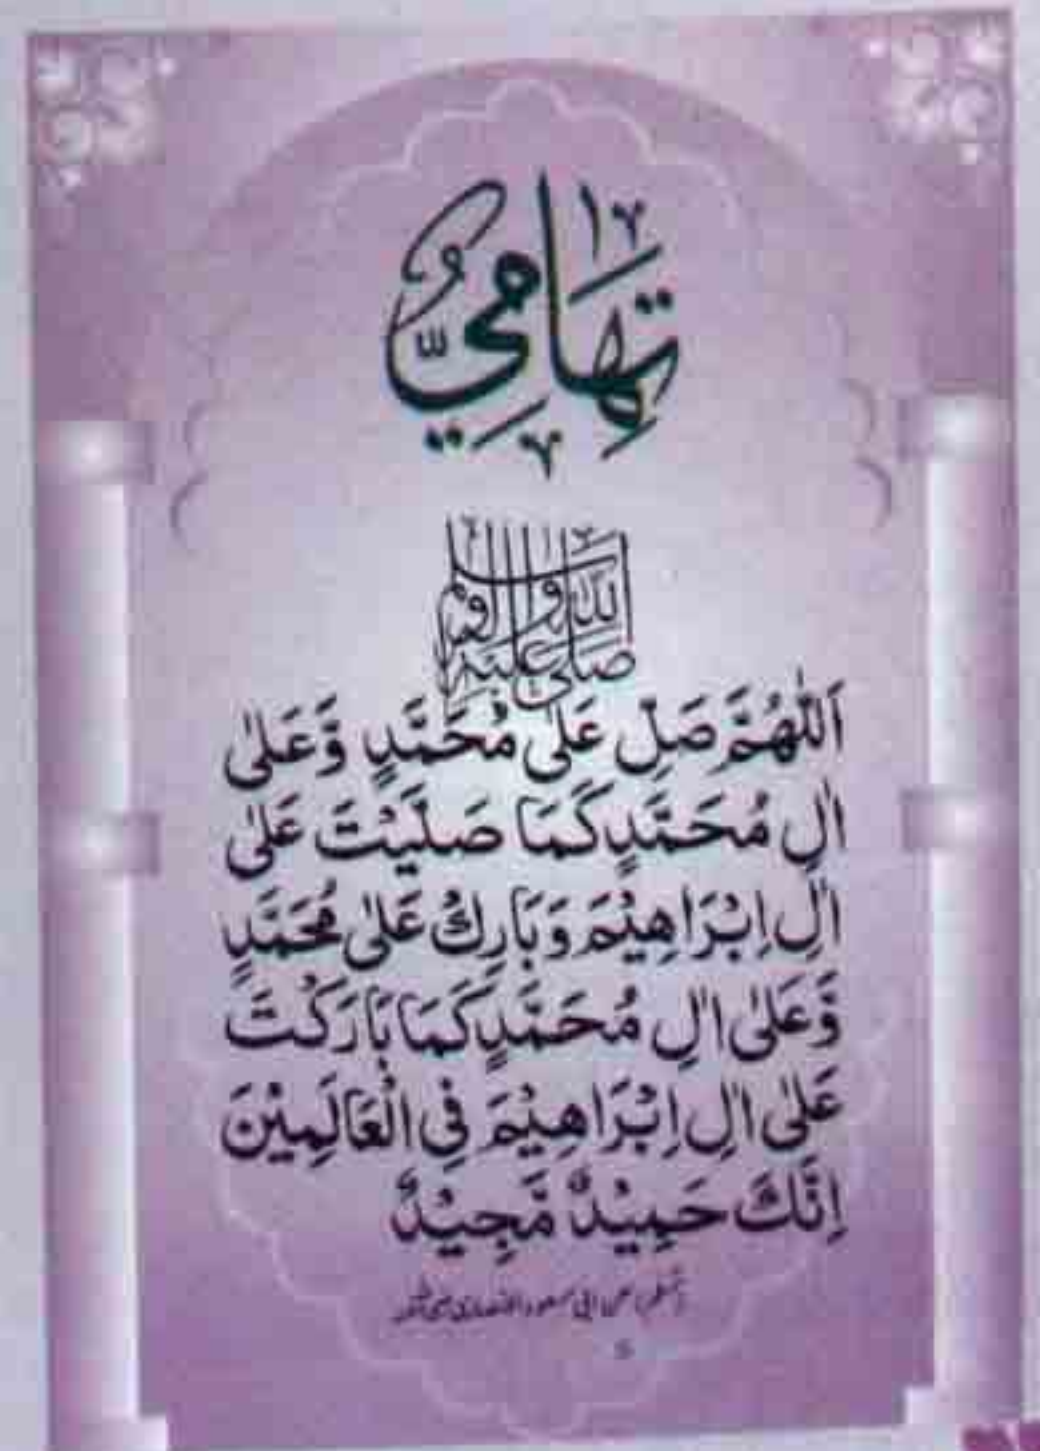 تِهَامِيٌّ
صَلَّى اللّٰهُ عَلَيْهِ وَاٰلِهٖ وَسَلَّمَ
اَللّٰهُمَّ صَلِّ عَلٰى مُحَمَّدٍ وَّعَلٰى
اٰلِ مُحَمَّدٍ كَمَا صَلَّيْتَ عَلٰى
اٰلِ اِبْرَاهِيْمَ وَبَارِكْ عَلٰى مُحَمَّدٍ
وَّعَلٰى اٰلِ مُحَمَّدٍ كَمَا بَارَكْتَ
عَلٰى اٰلِ اِبْرَاهِيْمَ فِى الْعَالَمِيْنَ
اِنَّكَ حَمِيْدٌ مَّجِيْدٌ
(مسلم) عن ابی مسعود الانصاری